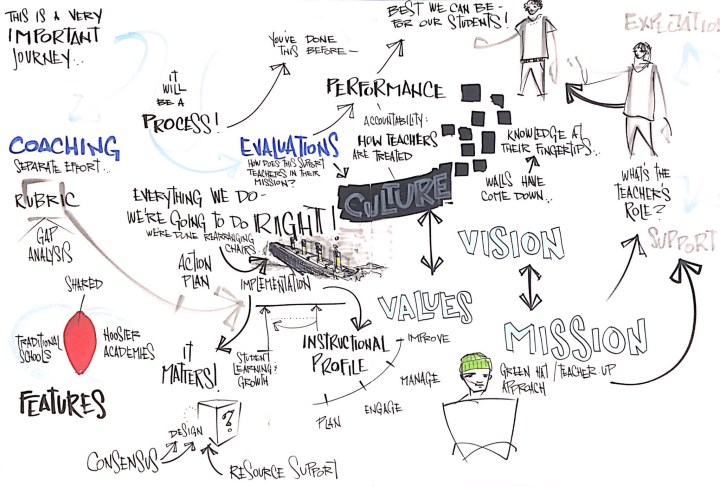 THIS IS A VERY
IMPORTANT
JOURNEY...
IT
WILL
BE A
PROCESS!
YOU'VE DONE
THIS BEFORE—
BEST WE CAN BE -
FOR OUR STUDENTS!
EXPECTATIONS
PERFORMANCE
ACCOUNTABILITY:
HOW TEACHERS
ARE TREATED
COACHING
SEPARATE EFFORT...
EVALUATIONS
HOW DOES THIS SUPPORT
TEACHERS IN THEIR
MISSION?
KNOWLEDGE AT
THEIR FINGERTIPS...
WALLS HAVE
COME DOWN...
WHAT'S THE
TEACHER'S
ROLE?
SUPPORT
RUBRIC
GAP
ANALYSIS
EVERYTHING WE DO -
WE'RE GOING TO DO RIGHT!
WE'RE DONE REARRANGING
CHAIRS
CULTURE
VISION
ACTION
PLAN
IMPLEMENTATION
VALUES
MISSION
SHARED
TRADITIONAL
SCHOOLS
HOOSIER
ACADEMIES
FEATURES
IT
MATTERS!
STUDENT
LEARNING &
GROWTH
INSTRUCTIONAL
PROFILE
IMPROVE
MANAGE
ENGAGE
PLAN
GREEN HAT / TEACHER UP
APPROACH
DESIGN
?
CONSENSUS
RESOURCE SUPPORT